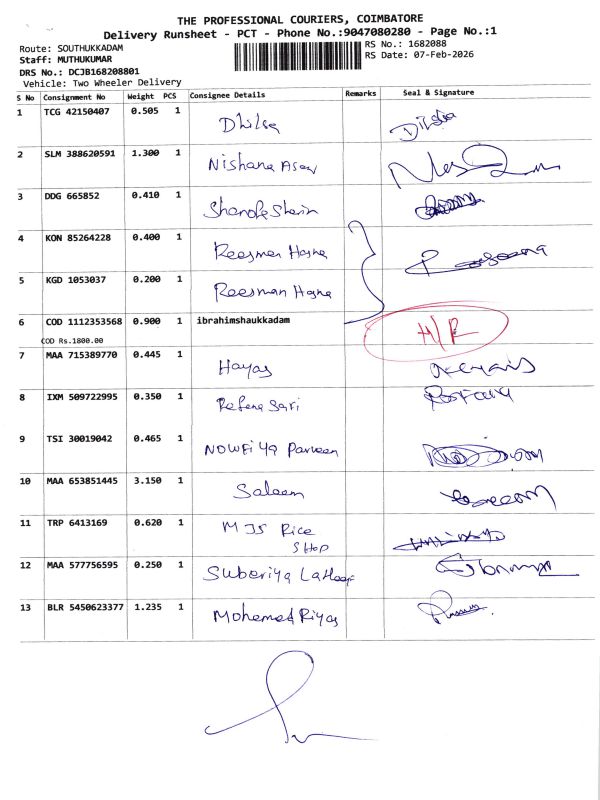 THE PROFESSIONAL COURIERS, COIMBATORE
Delivery Runsheet - PCT - Phone No.:9047080280 - Page No.:1
Route: SOUTHUKKADAM
RS No.: 1682088
Staff: MUTHUKUMAR
RS Date: 07-Feb-2026
DRS No.: DCJB168208801
Vehicle: Two Wheeler Delivery
S No Consignment No Weight PCS Consignee Details Remarks Seal & Signature
1 TCG 42150407 0.505 1 Dhilsa Dilsha
2 SLM 388620591 1.300 1 Nishana
3 DDG 665852 0.410 1
4 KON 85264228 0.400 1 Reesman Hasna
5 KGD 1053037 0.200 1 Reesman Hasna
6 COD 1112353568 0.900 1 ibrahimshaukkadam H/R
COD Rs.1800.00
7 MAA 715389770 0.445 1 Hayas
8 IXM 509722995 0.350 1 Sari
9 TSI 30019042 0.465 1 Nowfiya Parveen
10 MAA 653851445 3.150 1 Saleem
11 TRP 6413169 0.620 1 MJS Rice
Shop
12 MAA 577756595 0.250 1 Suberiya Latheef
13 BLR 5450623377 1.235 1 Mohemed Riyas